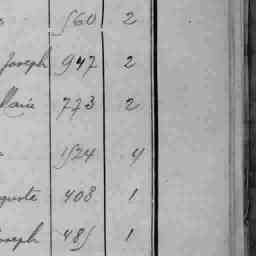 560 2
Joseph 947 2
Marie 773 2
1524 4
408 1
Joseph 485 1